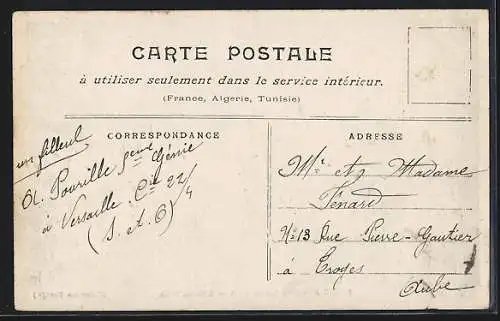 CARTE POSTALE
à utiliser seulement dans le service intérieur.
(France, Algerie, Tunisie)
CORRESPONDANCE
ADRESSE
un filleul
Pourille 5eme Génie
à Versaille Cie 22/4
(S. et O)
Mr et Madame
Fénard
No 13 Rue Pierre-Gautier
à Troyes
Aube